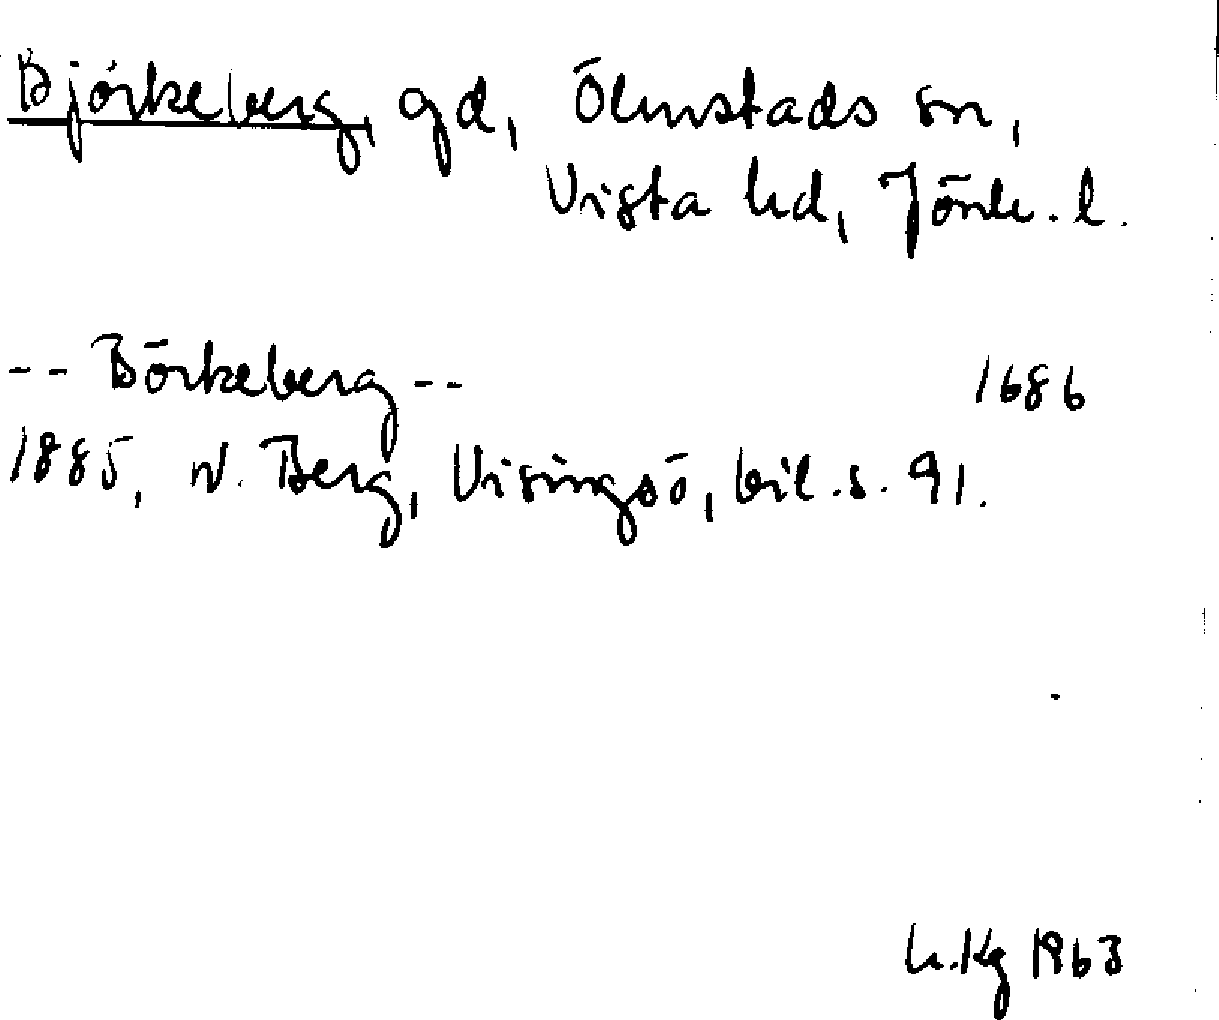 Björkeberg, gd, Ölmstads sn,
Vista hd, Jönk. l.
-- Börkeberg -- 1686
1885, W. Berg, Visingsö, bil. s. 91.
h.Kg 1963